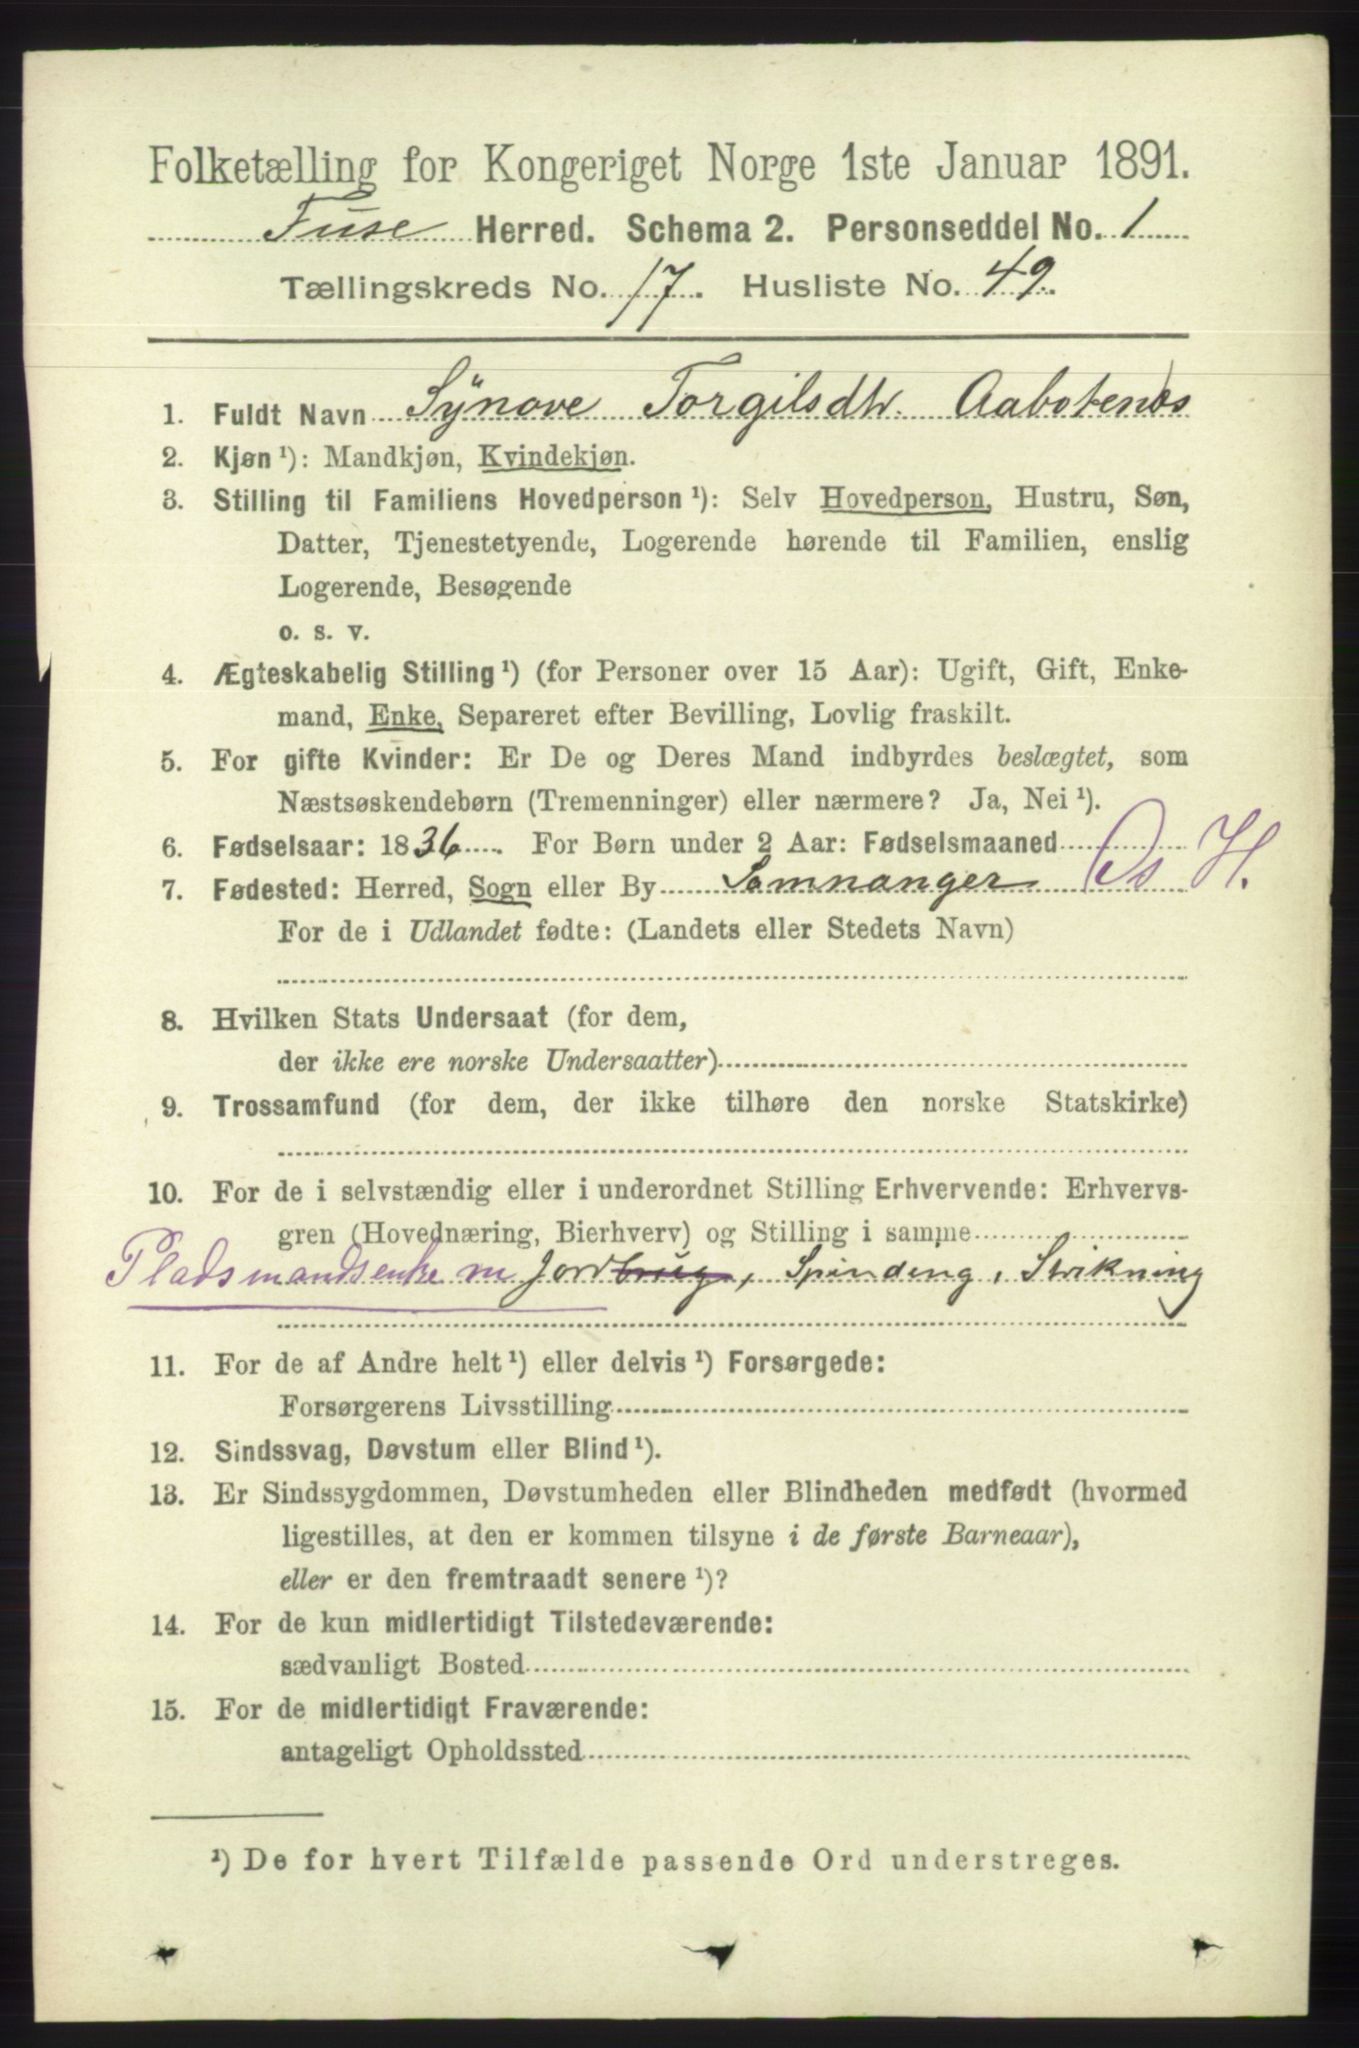 Folketælling for Kongeriget Norge 1ste Januar 1891.
Fuse Herred. Schema 2. Personseddel No. 1
Tællingskreds No. 17. Husliste No. 49.
1. Fuldt Navn Synove Torgilsdtr. Aabotenes
2. Kjøn ¹): Mandkjøn, Kvindekjøn.
3. Stilling til Familiens Hovedperson ¹): Selv Hovedperson, Hustru, Søn,
Datter, Tjenestetyende, Logerende hørende til Familien, enslig
Logerende, Besøgende
o. s. v.
4. Ægteskabelig Stilling ¹) (for Personer over 15 Aar): Ugift, Gift, Enke-
mand, Enke, Separeret efter Bevilling, Lovlig fraskilt.
5. For gifte Kvinder: Er De og Deres Mand indbyrdes beslægtet, som
Næstsøskendebørn (Tremenninger) eller nærmere? Ja, Nei ¹).
6. Fødselsaar: 1836. For Børn under 2 Aar: Fødselsmaaned
7. Fødested: Herred, Sogn eller By Samnanger Os H.
For de i Udlandet fødte: (Landets eller Stedets Navn)
8. Hvilken Stats Undersaat (for dem,
der ikke ere norske Undersaatter)
9. Trossamfund (for dem, der ikke tilhøre den norske Statskirke)
10. For de i selvstændig eller i underordnet Stilling Erhvervende: Erhvervs-
gren (Hovednæring, Bierhverv) og Stilling i samme
Pladsmandsenke m Jordbrug, Spinding, Strikning
11. For de af Andre helt ¹) eller delvis ¹) Forsørgede:
Forsørgerens Livsstilling
12. Sindssvag, Døvstum eller Blind ¹).
13. Er Sindssygdommen, Døvstumheden eller Blindheden medfødt (hvormed
ligestilles, at den er kommen tilsyne i de første Barneaar),
eller er den fremtraadt senere ¹)?
14. For de kun midlertidigt Tilstedeværende:
sædvanligt Bosted
15. For de midlertidigt Fraværende:
antageligt Opholdssted
¹) De for hvert Tilfælde passende Ord understreges.